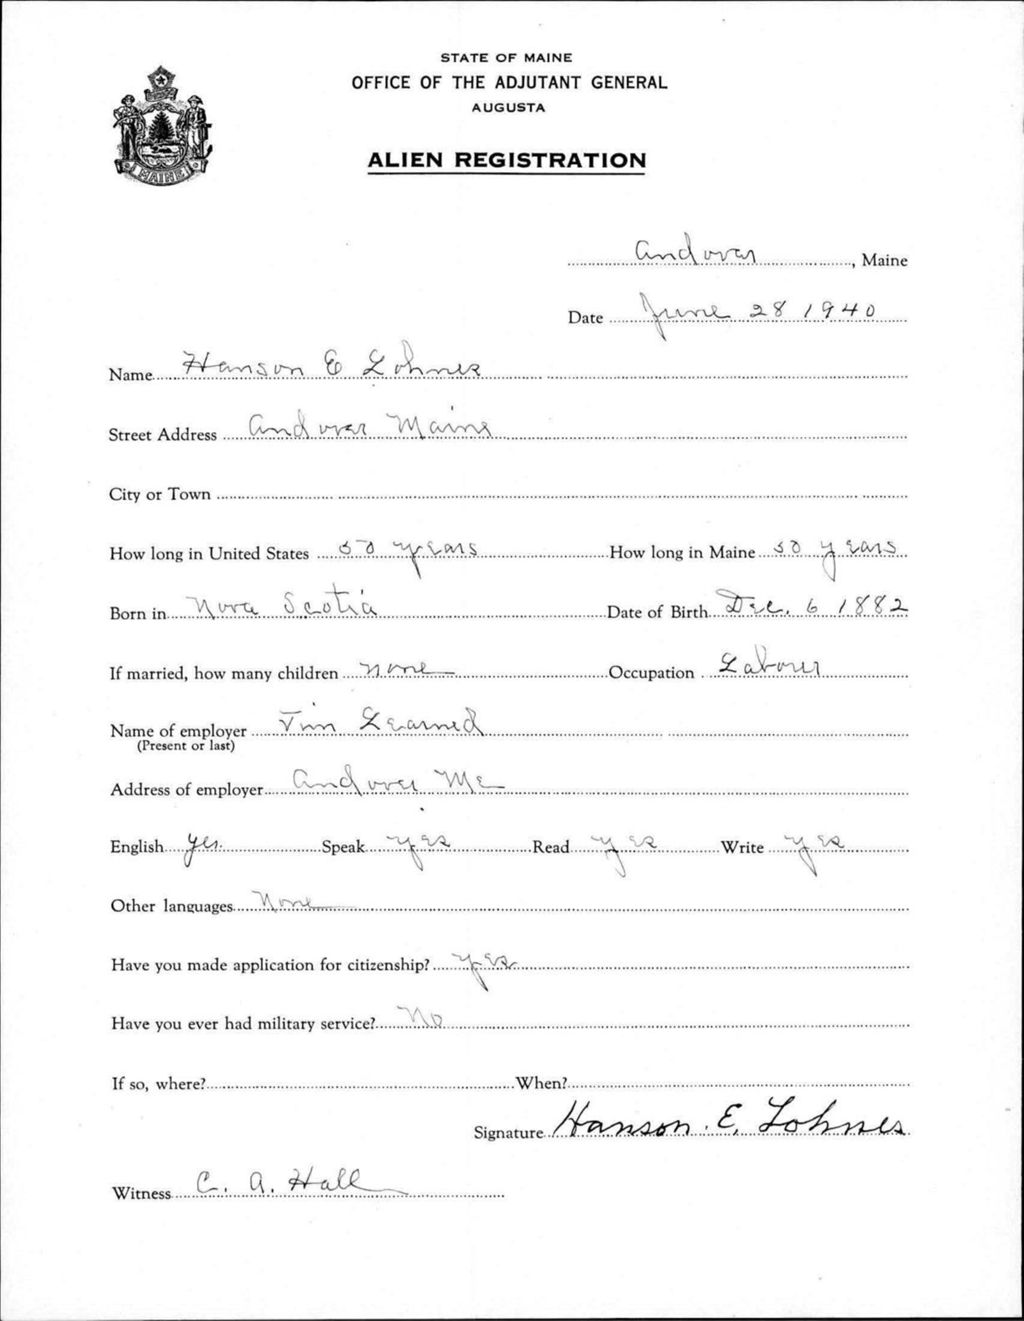 STATE OF MAINE
OFFICE OF THE ADJUTANT GENERAL
AUGUSTA
ALIEN REGISTRATION
MAINE
Andover, Maine
Date June 28 1940
Name Hanson E Lohnes
Street Address Andover Maine
City or Town
How long in United States 50 years How long in Maine 50 years
Born in Nova Scotia Date of Birth Dec. 6 1882
If married, how many children none Occupation Laborer
Name of employer Learned
(Present or last)
Address of employer Andover Me
English yes. Speak yes Read yes Write yes
Other languages None
Have you made application for citizenship? yes
Have you ever had military service? No
If so, where? When?
Signature Hanson E. Lohnes
Witness C. A. Hall